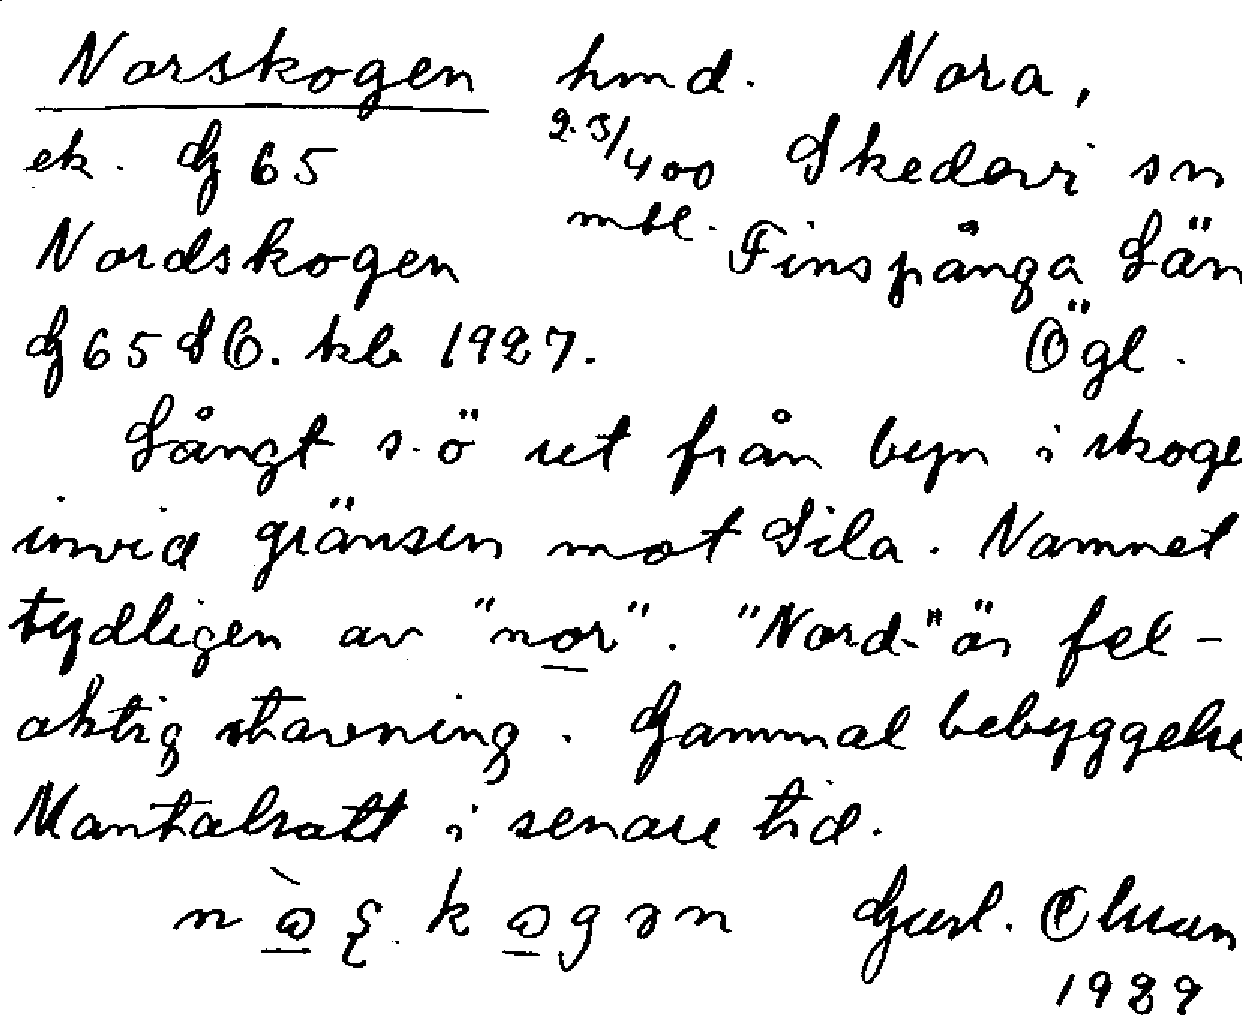 Norskogen hmd. Nora,
ek. G 65 23/400 Skedevi sn
Nordskogen mtl. Finspånga Län
G 65 SO. kb 1927. Ögl.
Långt s.ö ut från byn i skoge
invid gränsen mot Sila. Namnet
tydligen av "nor". "Nord-" är fel-
aktig stavning. Gammal bebyggelse
Mantalsatt i senare tid.
Gusl. Olsson